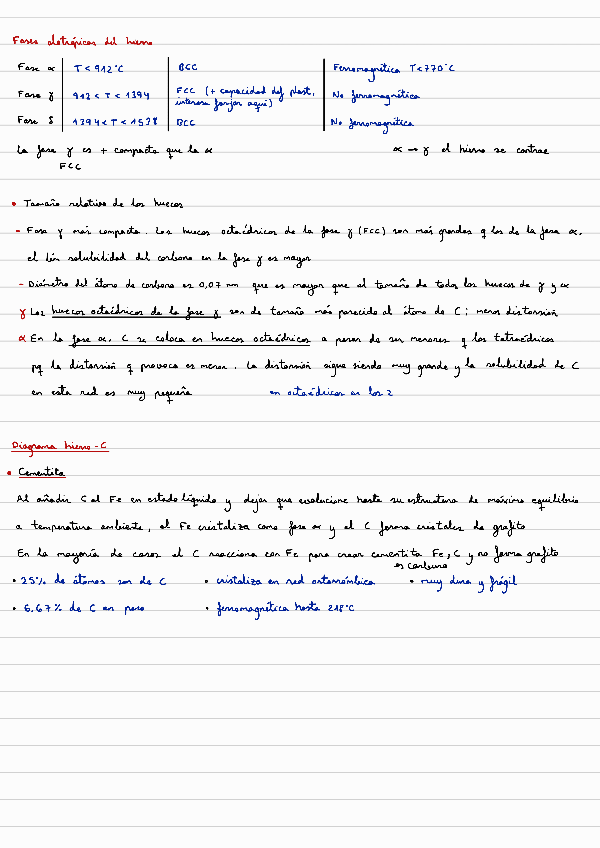 Fases alotrópicas del hierro
Fase α T < 912°C BCC Ferromagnética T<770°C
Fase γ 912 < T < 1394 FCC (+ capacidad def plast, interesa forjar aquí) No ferromagnética
Fase δ 1394 < T < 1538 BCC No ferromagnética
La fase γ es + compacta que la α α → γ el hierro se contrae
FCC
• Tamaño relativo de los huecos
- Fase γ más compacta. Los huecos octaédricos de la fase γ (FCC) son más grandes q los de la fase α,
el lím solubilidad del carbono en la fase γ es mayor
- Diámetro del átomo de carbono es 0,07 nm que es mayor que el tamaño de todos los huecos de γ y α
γ Los huecos octaédricos de la fase γ son de tamaño más parecido al átomo de C; menos distorsión
α En la fase α, C se coloca en huecos octaédricos a pesar de ser menores q los tetraédricos
pq la distorsión q provoca es menor. La distorsión sigue siendo muy grande y la solubilidad de C
en esta red es muy pequeña en octaédricos en los 2
Diagrama hierro-C
• Cementita
Al añadir C al Fe en estado líquido y dejar que evolucione hasta su estructura de máximo equilibrio
a temperatura ambiente, el Fe cristaliza como fase α y el C forma cristales de grafito
En la mayoría de casos el C reacciona con Fe para crear cementita Fe₃C y no forma grafito
es carburo
• 25% de átomos son de C • cristaliza en red ortorrómbica • muy dura y frágil
• 6,67% de C en peso • ferromagnética hasta 218°C